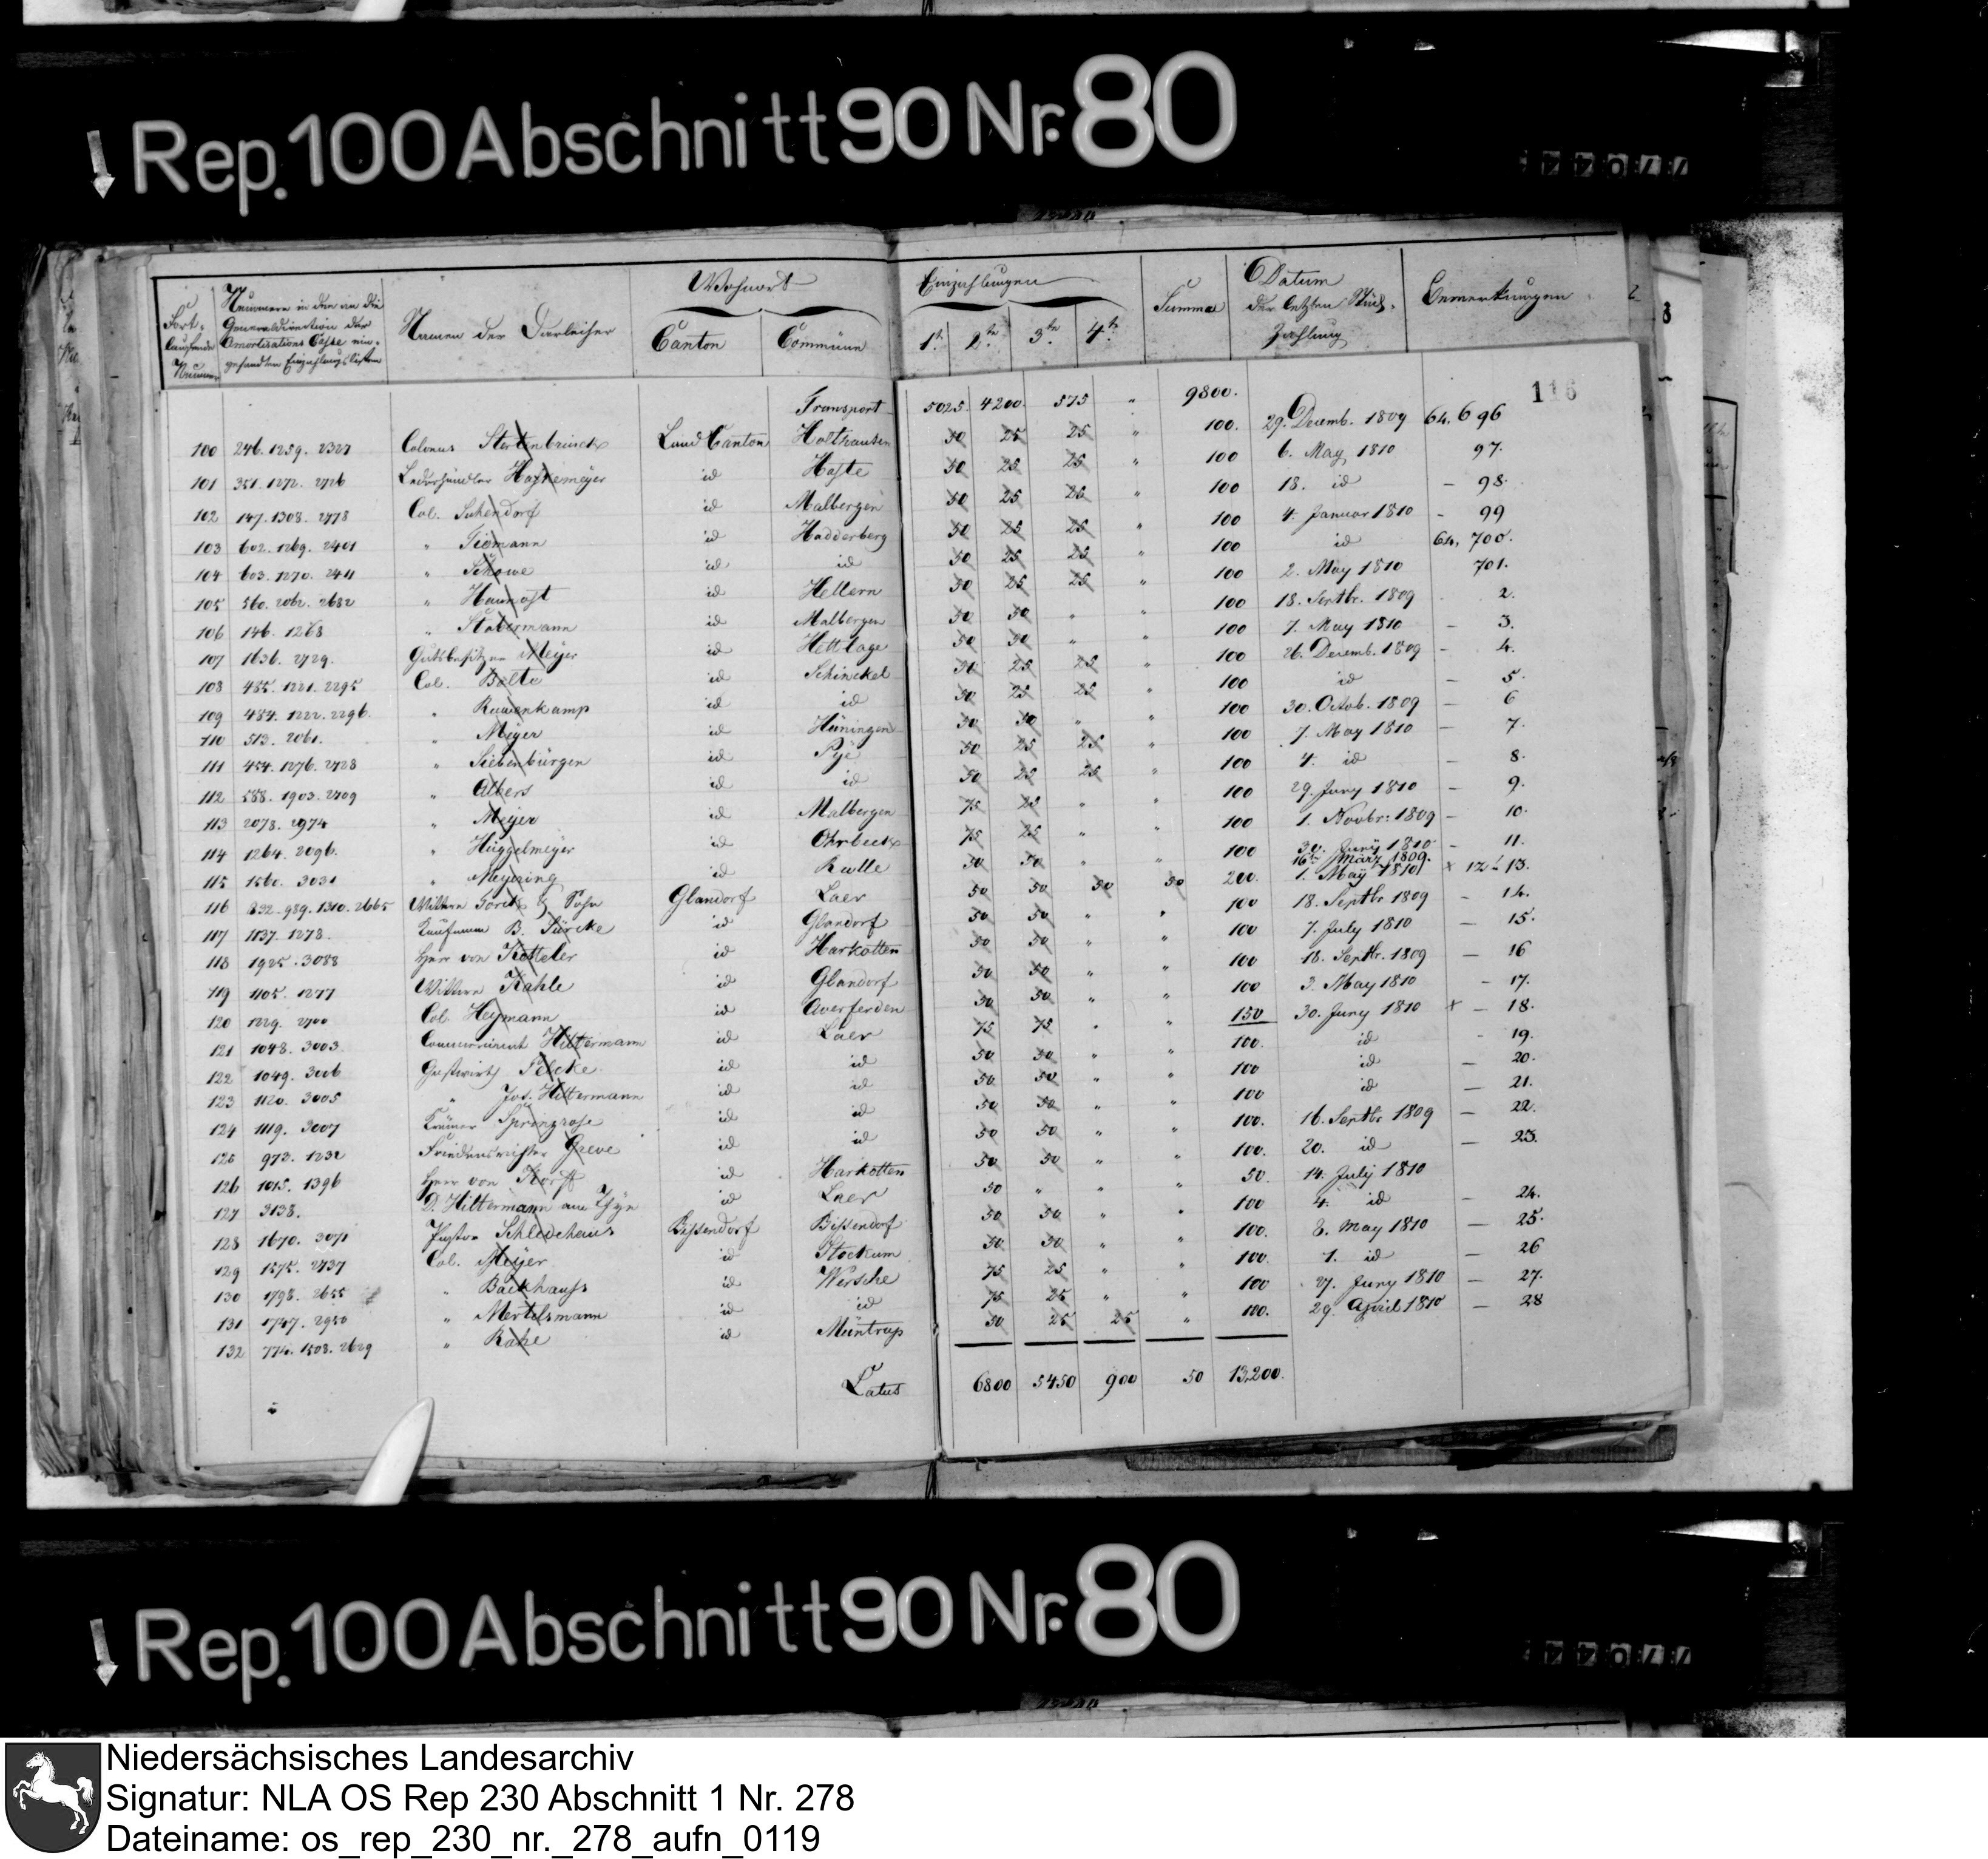 Rep. 100 Abschnitt 90 Nr. 80
Fort-laufende Nummer | Nummern in den an die Generaldirection der Amortisations Casse eingesandten Einzahlungslisten | Namen der Darleiher | Wohnort | Canton | Commüne | Einzahlungen | 1te | 2te | 3te | 4te | Summa | Datum der letzten Rückzahlung | Bemerkungen
116
Transport 5025. 4200. 575 " 9800.
100 246. 1259. 2327 Colonus Stertenbrinck Land Canton Holthausen 50 25 25 " 100. 29. Decemb. 1809 64. 696
101 351. 1272. 2726 Lederhändler id Haste 50 25 25 " 100 6. May 1810 97.
102 147. 1308. 2778 Col. Suhendorf id Malbergen 50 25 25 " 100 18. id - 98.
103 602. 1269. 2401 " Tiemann id Hadderberg 50 25 25 " 100 4. Januar 1810 - 99
104 603. 1270. 2411 " Schowe id id 50 25 25 " 100 id 64, 700.
105 560. 2062. 2682 " id Hellern 50 25 25 " 100 2. May 1810 701.
106 146. 1268 " id Malbergen 50 50 " " 100 18. Septbr. 1809 2.
107 1636. 2729. Gutsbesitzer Meyer id Hettlage 50 50 " " 100 7. May 1810 - 3.
108 485. 1221. 2295 Col. Bolte id Schinckel 50 25 25 " 100 26. Decemb. 1809 - 4.
109 484. 1222. 2296. " id id 50 25 25 " 100 id - 5.
110 513. 2061. " Meyer id Hüningen 50 50 " " 100 30. Octob. 1809 - 6
111 454. 1276. 2728 " Siebenbürgen id Pye 50 25 25 " 100 7. May 1810 - 7.
112 588. 1903. 2709 " Albers id id 50 25 25 " 100 4. id - 8.
113 2078. 2974 " Meyer id Malbergen 75 25 " " 100 29. Juny 1810 - 9.
114 1264. 2096. " Hüggelmeyer id Ohrbeck 75 25 " " 100 1. Novbr. 1809 - 10.
115 1560. 3031 " Meyering id Rulle 50 50 " " 100 30. Juny 1810 - 11.
116 832. 989. 1310. 2665 Wittwe & Sohn Glandorf Laer 50 50 50 50 200. 16te März 1809. 1. May 1810 x 12 - 13.
117 1137. 1278. Kaufmann B. Türcke id Glandorf 50 50 " " 100 18. Septbr 1809 - 14.
118 1925. 3088 Herr von Ketteler id Harkotten 50 50 " " 100 7. July 1810 - 15.
119 1105. 1277 Wittwe Kahle id Glandorf 50 50 " " 100 18. Septbr. 1809 - 16
120 1229. 2700 Col. Heymann id Averferden 50 50 " " 100 3. May 1810 - 17.
121 1048. 3003. Hiltermann id Laer 75 75 " " 150 30. Juny 1810 x - 18.
122 1049. 3006 Gastwirth id id 50 50 " " 100. id - 19.
123 1120. 3005 " Jos. Hiltermann id id 50 50 " " 100 id - 20.
124 1119. 3007 Krämer id id 50 50 " " 100 id - 21.
125 973. 1232 Friedensrichter Greve id id 50 50 " " 100. 16. Septbr 1809 - 22.
126 1015. 1396 Herr von Korff id Harkotten 50 50 " " 100. 20. id - 23.
127 3138. D. Hiltermann am Thye id Laer 50 " " " 50. 14. July 1810
128 1670. 3071 Pastor Schledehaus Bissendorf Bissendorf 50 50 " " 100 4. id - 24.
129 1575. 2737 Col. Meyer id Stockum 50 50 " " 100. 8. May 1810 - 25.
130 1798. 2655 " Backhauss id Wersche 75 25 " " 100. 1. id - 26
131 1747. 2950 " Mertelsmann id id 75 25 " " 100 27. Juny 1810 - 27.
132 774. 1508. 2629 " Rahe id Müntrup 50 25 25 " 100. 29. April 1810 - 28
Latus 6800 5450 900 50 13,200.
Rep. 100 Abschnitt 90 Nr. 80
Niedersächsisches Landesarchiv
Signatur: NLA OS Rep 230 Abschnitt 1 Nr. 278
Dateiname: os_rep_230_nr._278_aufn_0119